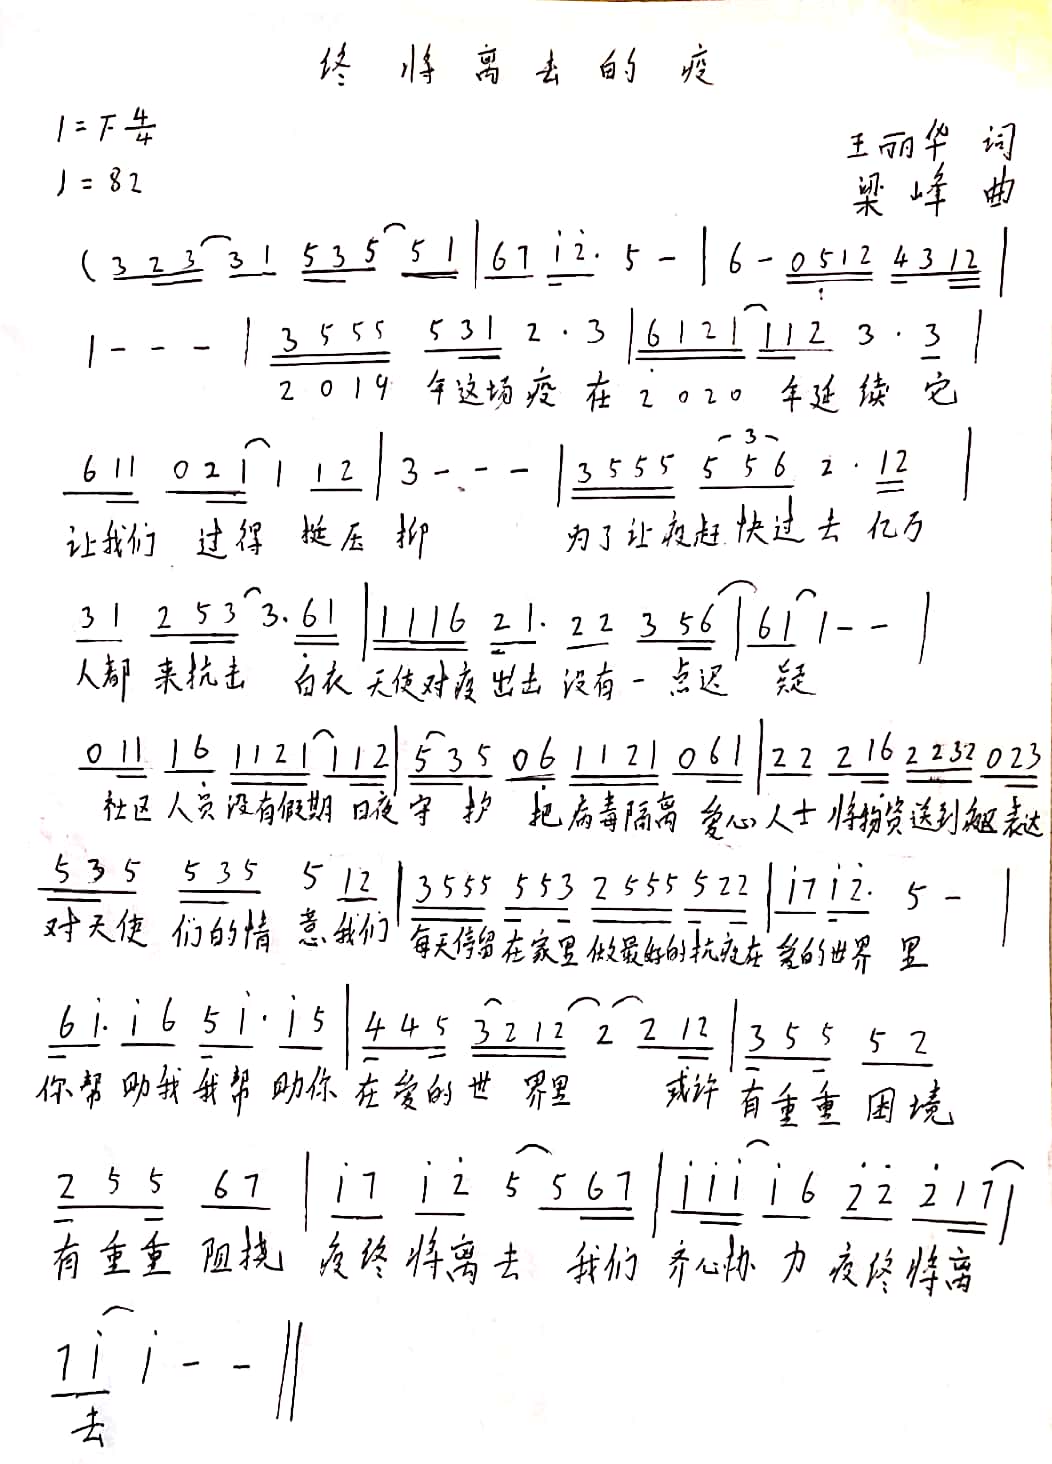 终将离去的疫
1=F 4/4
♩=82
王丽华 词
梁峰 曲
(3 2 3 3 1 5 3 5 5 1 | 6 7 i 2̇. 5 - | 6 - 0 5 1 2 4 3 1 2 |
1 - - - | 3 5 5 5 5 3 1 2 . 3 | 6 1 2 1 1 1 2 3 . 3 |
2019 年这场疫 在 2020 年延续 它
6 1 1 0 2 1 1 1 2 | 3 - - - | 3 5 5 5 5 5 6 2 . 1 2 |
让我们 过得 挺压抑 为了让疫赶快过去 亿万
3 1 2 5 3 3. 6 1 | 1 1 1 6 2 1. 2 2 3 5 6 | 6 1 1 - - |
人都 来抗击 白衣 天使对疫出击 没有一点迟 疑
0 1 1 1 6 1 1 2 1 1 1 2 | 5 3 5 0 6 1 1 2 1 0 6 1 | 2 2 2 1 6 2 2 3 2 0 2 3
社区 人员没有假期 日夜 守 护 把病毒隔离 爱心人士 将物资送到疫区表达
5 3 5 5 3 5 5 1 2 | 3 5 5 5 5 5 3 2 5 5 5 5 2 2 | i 7 i 2̇. 5 - |
对天使 们的情 意我们 每天停留在家里做最好的抗疫在 爱的世界 里
6 i. i 6 5 i. i 5 | 4 4 5 3 2 1 2 2 2 1 2 | 3 5 5 5 2
你帮 助我我帮 助你 在爱的世 界里 或许 有重重 困境
2 5 5 6 7 | i 7 i 2̇ 5 5 6 7 | i i i i 6 2̇ 2̇ 2̇ 1 7 |
有重重 阻挠 疫终将离去 我们 齐心协 力疫终将离
7 i i - - ‖
去